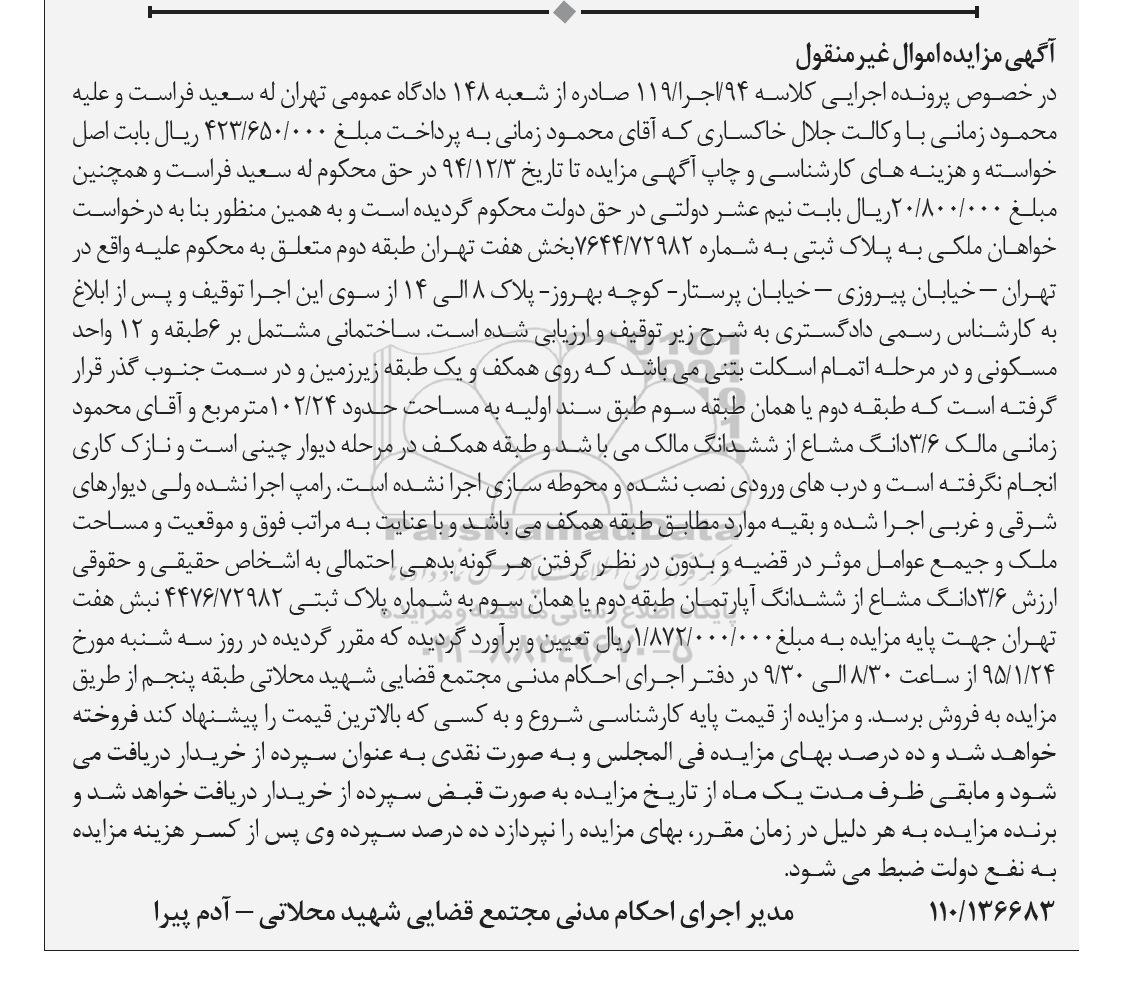 آگهی مزایده اموال غیر منقول
در خصوص پرونده اجرایی کلاسه ۹۴/اجرا/۱۱۹ صادره از شعبه ۱۴۸ دادگاه عمومی تهران له سعید فراست و علیه
محمود زمانی با وکالت جلال خاکساری که آقای محمود زمانی به پرداخت مبلغ ۴۲۳/۶۵۰/۰۰۰ ریال بابت اصل
خواسته و هزینه های کارشناسی و چاپ آگهی مزایده تا تاریخ ۹۴/۱۲/۳ در حق محکوم له سعید فراست و همچنین
مبلغ ۲۰/۸۰۰/۰۰۰ریال بابت نیم عشر دولتی در حق دولت محکوم گردیده است و به همین منظور بنا به درخواست
خواهان ملکی به پلاک ثبتی به شماره ۷۶۴۴/۷۲۹۸۲بخش هفت تهران طبقه دوم متعلق به محکوم علیه واقع در
تهران – خیابان پیروزی – خیابان پرستار- کوچه بهروز- پلاک ۸ الی ۱۴ از سوی این اجرا توقیف و پس از ابلاغ
به کارشناس رسمی دادگستری به شرح زیر توقیف و ارزیابی شده است. ساختمانی مشتمل بر ۶طبقه و ۱۲ واحد
مسکونی و در مرحله اتمام اسکلت بتنی می باشد که روی همکف و یک طبقه زیرزمین و در سمت جنوب گذر قرار
گرفته است که طبقه دوم یا همان طبقه سوم طبق سند اولیه به مساحت حدود ۱۰۲/۲۴مترمربع و آقای محمود
زمانی مالک ۳/۶دانگ مشاع از ششدانگ مالک می با شد و طبقه همکف در مرحله دیوار چینی است و نازک کاری
انجام نگرفته است و درب های ورودی نصب نشده و محوطه سازی اجرا نشده است. رامپ اجرا نشده ولی دیوارهای
شرقی و غربی اجرا شده و بقیه موارد مطابق طبقه همکف می باشد و با عنایت به مراتب فوق و موقعیت و مساحت
ملک و جیمع عوامل موثر در قضیه و بدون در نظر گرفتن هر گونه بدهی احتمالی به اشخاص حقیقی و حقوقی
ارزش ۳/۶دانگ مشاع از ششدانگ آپارتمان طبقه دوم یا همان سوم به شماره پلاک ثبتی ۴۴۷۶/۷۲۹۸۲ نبش هفت
تهران جهت پایه مزایده به مبلغ۱/۸۷۲/۰۰۰/۰۰۰ریال تعیین و برآورد گردیده که مقرر گردیده در روز سه شنبه مورخ
۹۵/۱/۲۴ از ساعت ۸/۳۰ الی ۹/۳۰ در دفتر اجرای احکام مدنی مجتمع قضایی شهید محلاتی طبقه پنجم از طریق
مزایده به فروش برسد. و مزایده از قیمت پایه کارشناسی شروع و به کسی که بالاترین قیمت را پیشنهاد کند فروخته
خواهد شد و ده درصد بهای مزایده فی المجلس و به صورت نقدی به عنوان سپرده از خریدار دریافت می
شود و مابقی ظرف مدت یک ماه از تاریخ مزایده به صورت قبض سپرده از خریدار دریافت خواهد شد و
برنده مزایده به هر دلیل در زمان مقرر، بهای مزایده را نپردازد ده درصد سپرده وی پس از کسر هزینه مزایده
به نفع دولت ضبط می شود.
۱۱۰/۱۳۶۶۸۳ مدیر اجرای احکام مدنی مجتمع قضایی شهید محلاتی – آدم پیرا
ParsNamadData
پایگاه اطلاع رسانی مناقصه و مزایده
۰۲۱-۸۸۳۴۹۶۷۰-۵